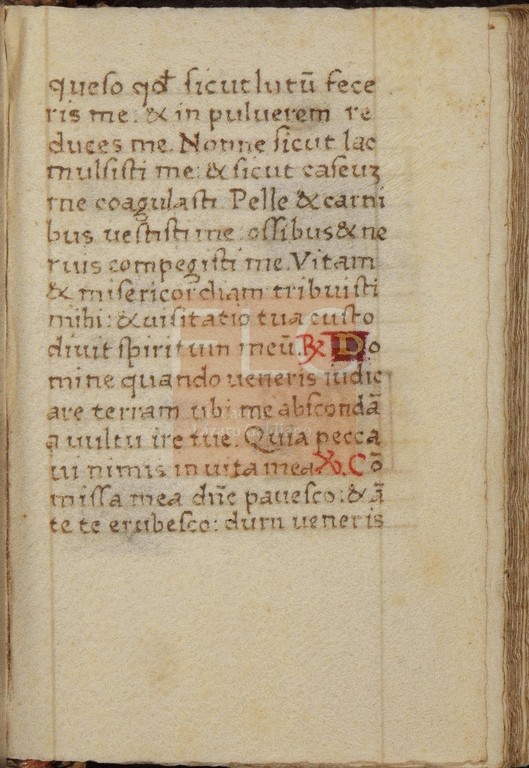 queso qđ sicut lutū fece
ris me: & in puluerem re
duces me. Nonne sicut lac
mulsisti me: & sicut caseuʒ
me coagulasti. Pelle & carni
bus uestisti me. ossibus & ne
ruis compegisti me. Vitam
& misericordiam tribuisti
mihi: & uisitatio tua custo
diuit spiritum meū. R Do
mine quando ueneris iudic
are terram ubi me abscondā
a uultu ire tue. Quia pecca
ui nimis in uita mea. V. Cō
missa mea dn̄e pauesco: & ā
te te erubesco: dum ueneris